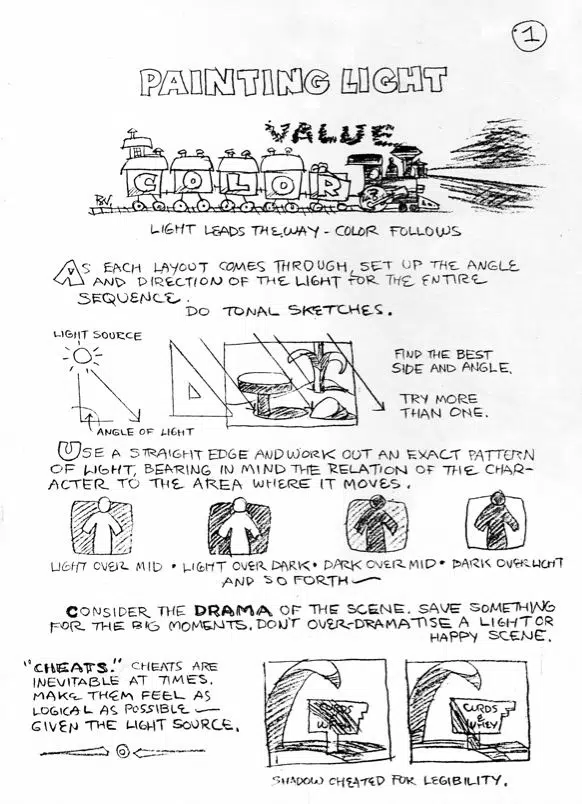 1
PAINTING LIGHT
VALUE
COLOR
BV.
LIGHT LEADS THE WAY - COLOR FOLLOWS
AS EACH LAYOUT COMES THROUGH, SET UP THE ANGLE
AND DIRECTION OF THE LIGHT FOR THE ENTIRE
SEQUENCE.
DO TONAL SKETCHES.
LIGHT SOURCE
ANGLE OF LIGHT
FIND THE BEST
SIDE AND ANGLE.
TRY MORE
THAN ONE.
USE A STRAIGHT EDGE AND WORK OUT AN EXACT PATTERN
OF LIGHT, BEARING IN MIND THE RELATION OF THE CHAR-
ACTER TO THE AREA WHERE IT MOVES.
LIGHT OVER MID • LIGHT OVER DARK • DARK OVER MID • DARK OVER LIGHT
AND SO FORTH
CONSIDER THE DRAMA OF THE SCENE. SAVE SOMETHING
FOR THE BIG MOMENTS. DON'T OVER-DRAMATISE A LIGHT OR
HAPPY SCENE.
"CHEATS." CHEATS ARE
INEVITABLE AT TIMES.
MAKE THEM FEEL AS
LOGICAL AS POSSIBLE —
GIVEN THE LIGHT SOURCE.
CURDS
&
WHEY
CURDS
&
WHEY
SHADOW CHEATED FOR LEGIBILITY.